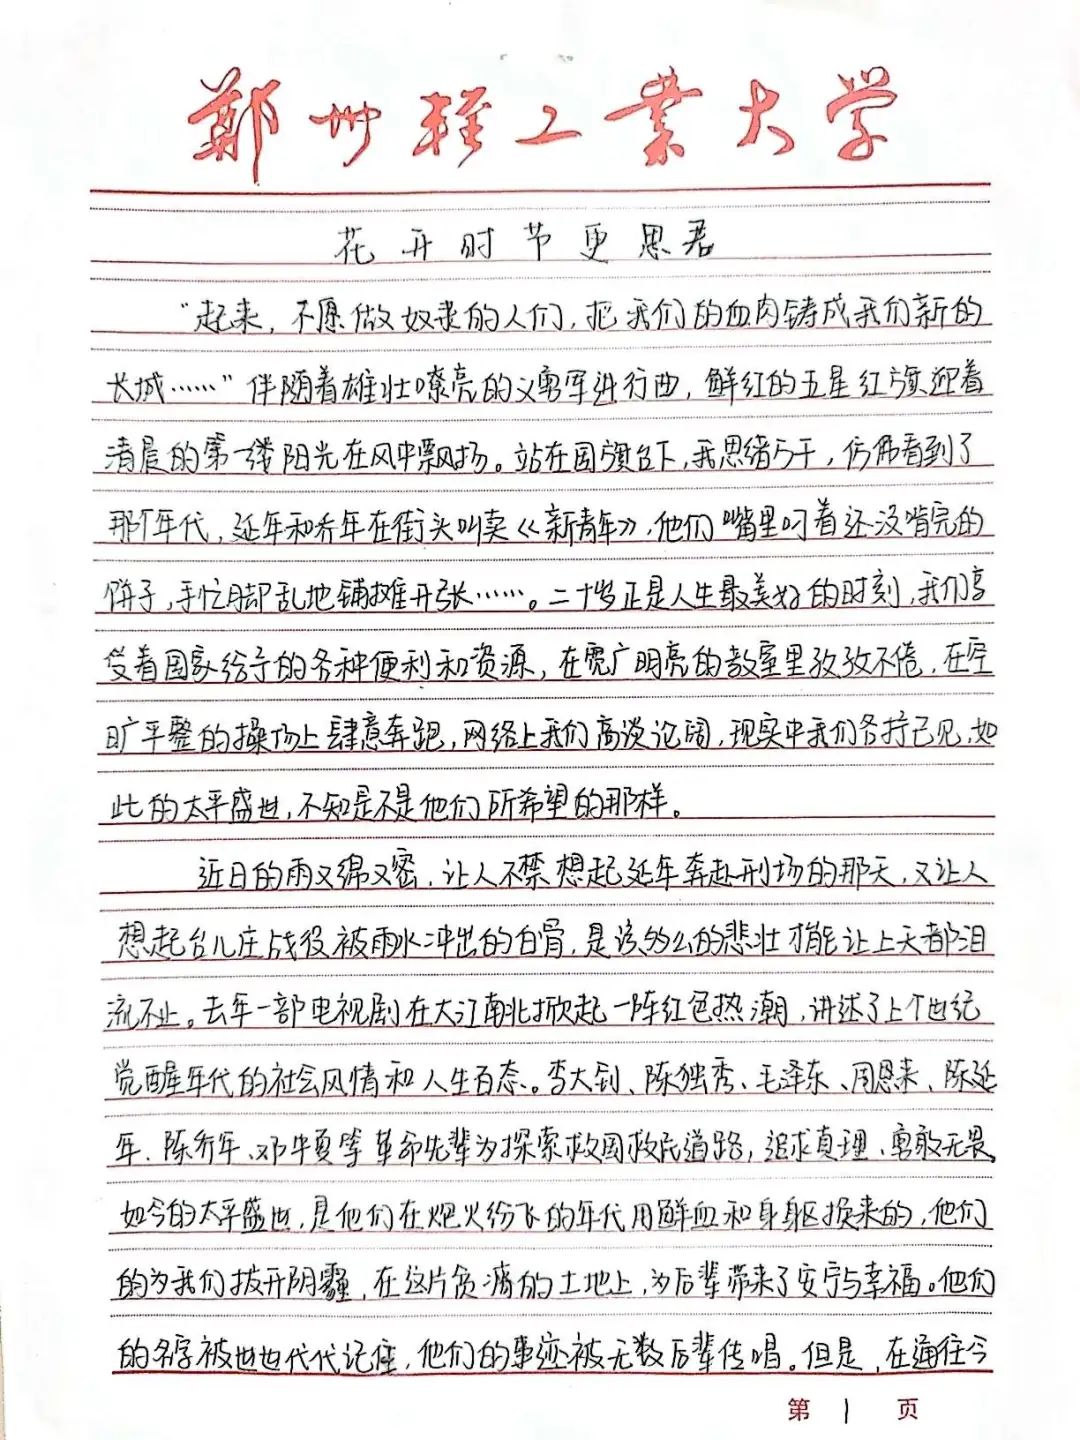 鄭州輕工業大学
花开时节更思君
“起来，不愿做奴隶的人们，把我们的血肉铸成我们新的
长城……”伴随着雄壮嘹亮的义勇军进行曲，鲜红的五星红旗迎着
清晨的第一缕阳光在风中飘扬。站在国旗台下，我思绪万千，仿佛看到了
那个年代，延年和乔年在街头叫卖《新青年》，他们嘴里叼着还没啃完的
饼子，手忙脚乱地铺摊开张……。二十岁正是人生最美好的时刻，我们享
受着国家给予的各种便利和资源，在宽广明亮的教室里孜孜不倦，在空
旷平整的操场上肆意奔跑，网络上我们高谈论阔，现实中我们各抒己见，如
此的太平盛世，不知是不是他们所希望的那样。
近日的雨又绵又密，让人不禁想起延年奔赴刑场的那天，又让人
想起台儿庄战役被雨水冲出的白骨，是该多么的悲壮才能让上天都泪
流不止。去年一部电视剧在大江南北掀起一阵红色热潮，讲述了上个世纪
觉醒年代的社会风情和人生百态。李大钊、陈独秀、毛泽东、周恩来、陈延
年、陈乔年、邓中夏等革命先辈为探索救国救民道路，追求真理、勇敢无畏。
如今的太平盛世，是他们在炮火纷飞的年代用鲜血和身躯换来的，他们
的为我们拨开阴霾，在这片贫瘠的土地上，为后辈带来了安宁与幸福。他们
的名字被世世代代记住，他们的事迹被无数后辈传唱。但是，在通往今
第 1 页